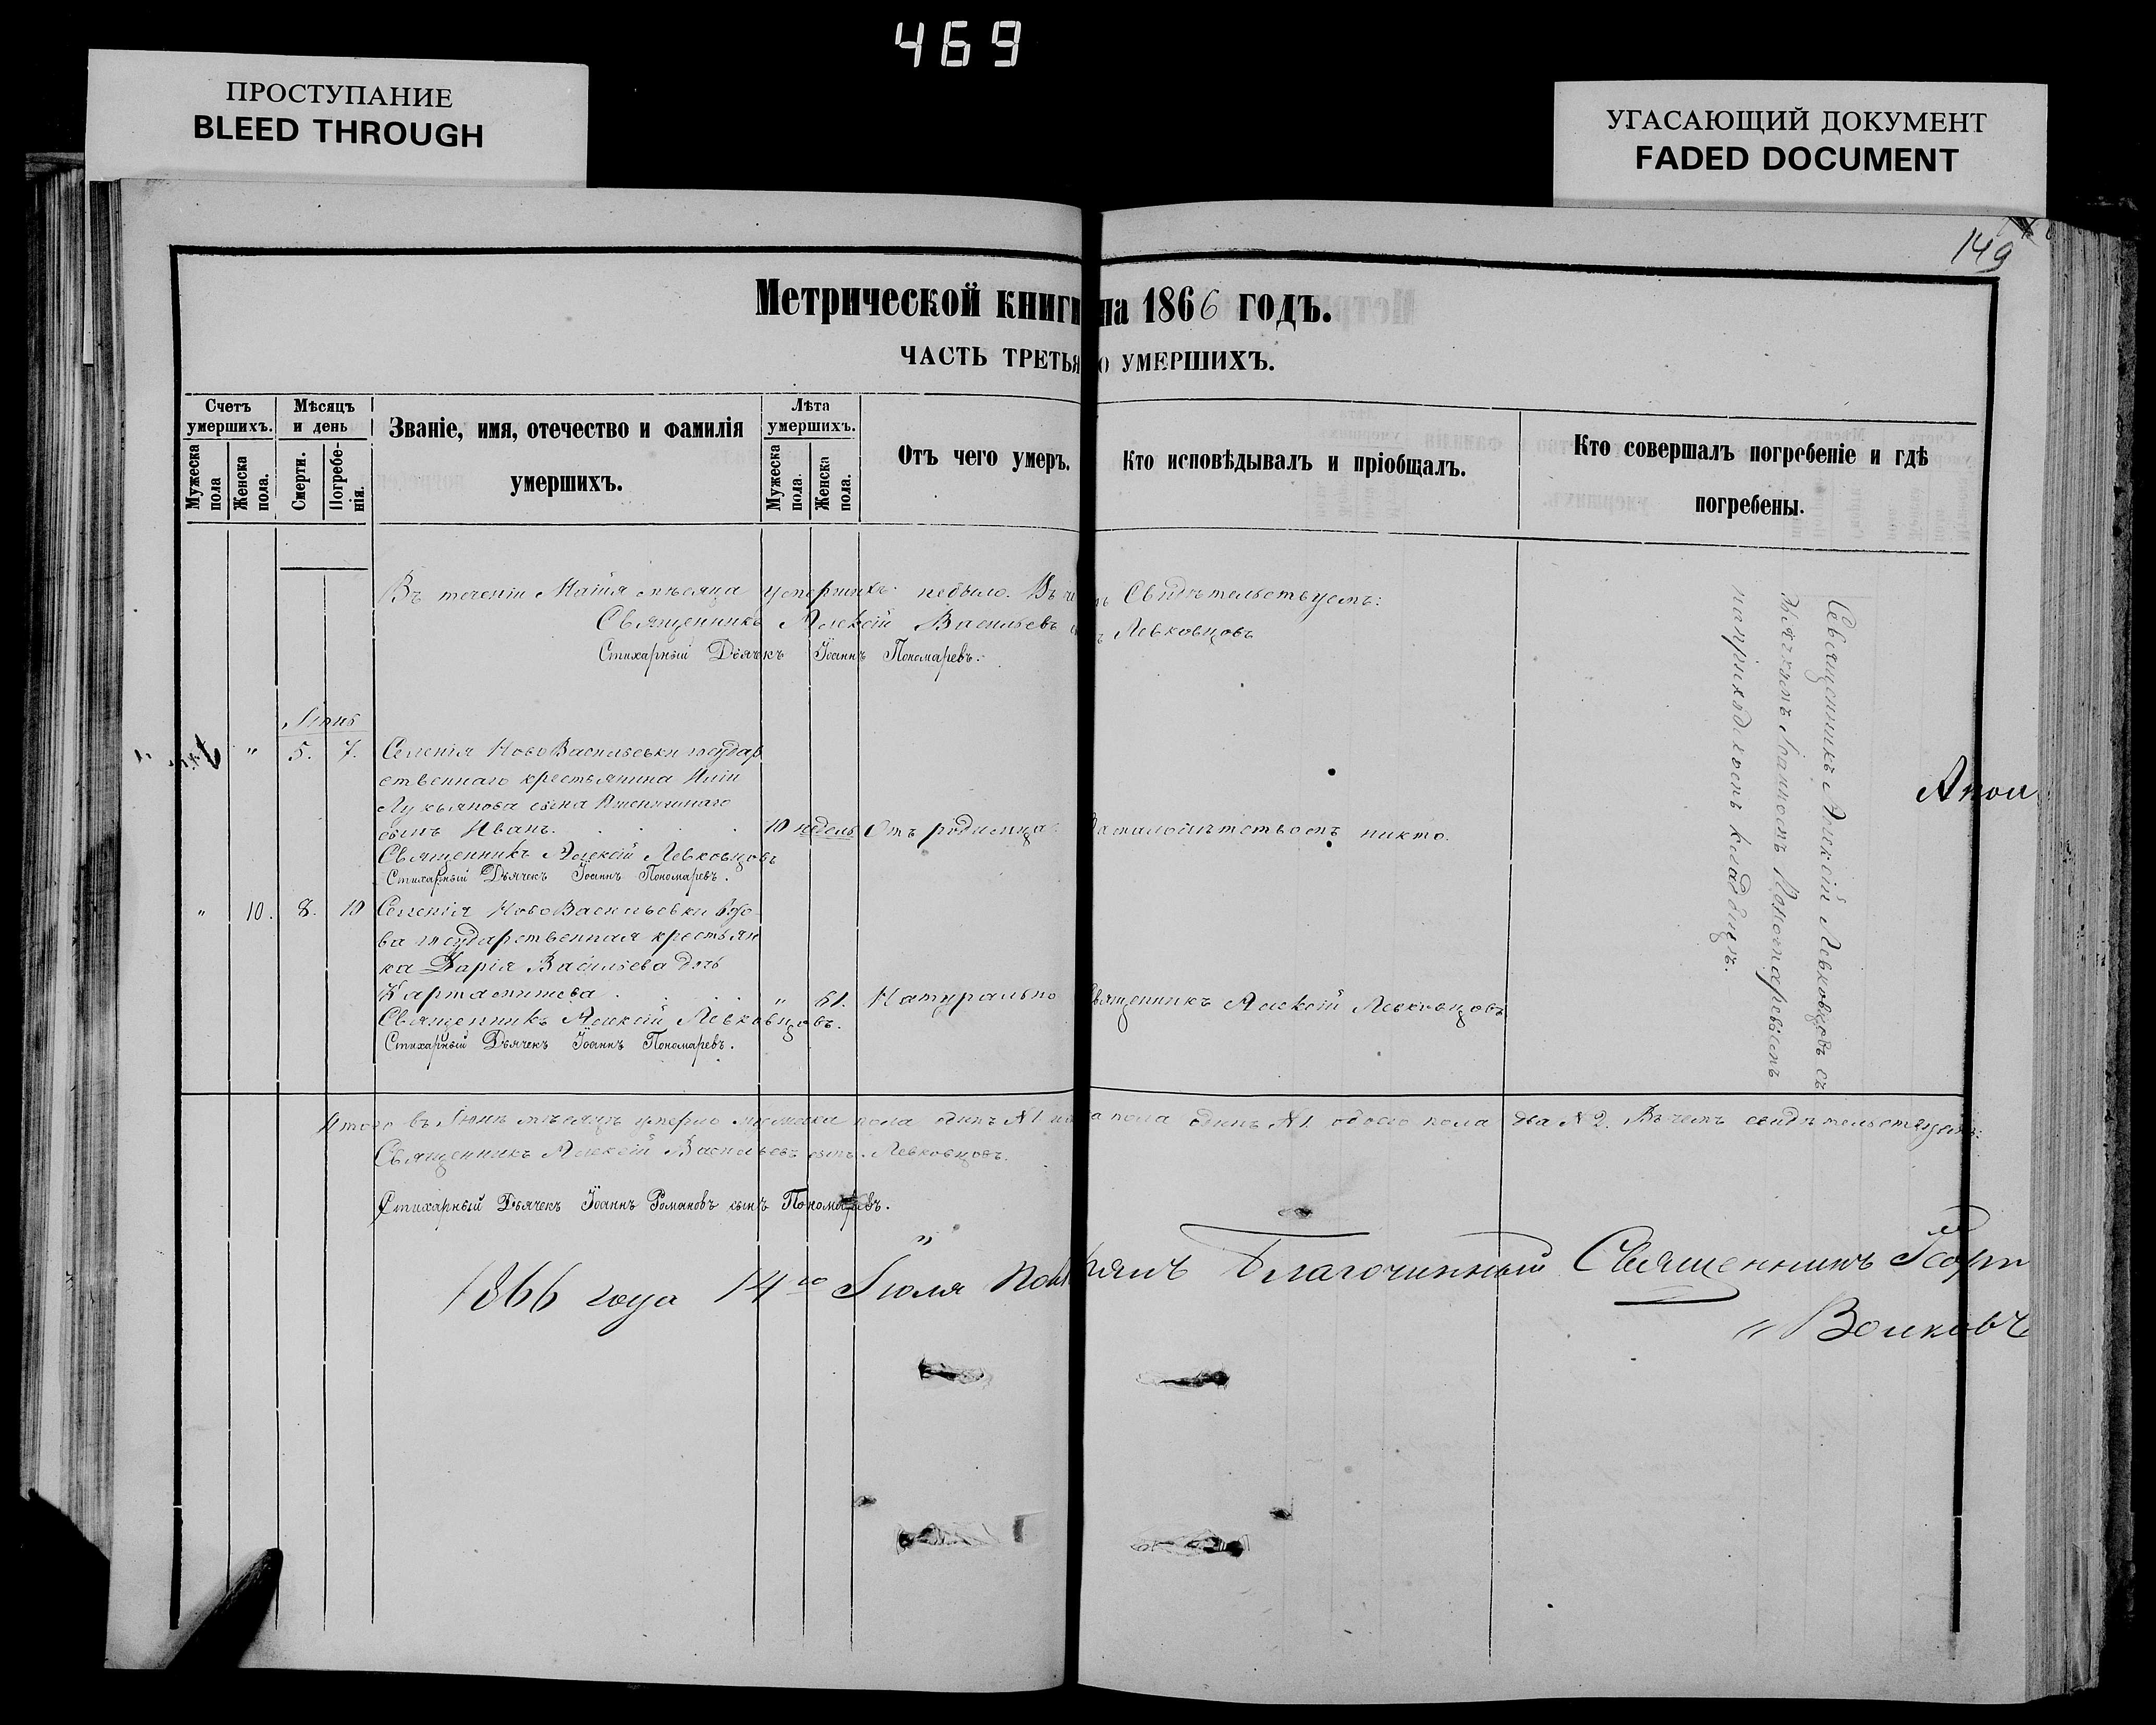 469
ПРОСТУПАНИЕ
BLEED THROUGH
УГАСАЮЩИЙ ДОКУМЕНТ
FADED DOCUMENT
149
Метрической книги на 1866 годъ.
ЧАСТЬ ТРЕТЬЯ О УМЕРШИХЪ.
Счетъ умершихъ.
Мужеска пола
Женска пола.
Мѣсяцъ и день
Смерти.
Погребенія.
Званіе, имя, отечество и фамилія
умершихъ.
Лѣта умершихъ.
Мужеска пола.
Женска пола.
Отъ чего умеръ.
Кто исповѣдывалъ и пріобщалъ.
Кто совершалъ погребеніе и гдѣ
погребены.
Въ теченіи Маія мѣсяца умершихъ небыло. Въ чемъ Свидѣтельствуемъ:
Священникъ Алексій Васильевъ сынъ Левковцовъ
Стихарный Дьячекъ Іоаннъ Пономаревъ.
Іюнь
" 5. 7. Селенія НовоВасильевки государ
ственнаго крестьянина Иліи
Лукьянова сына
сынъ Иванъ. 10 недель Отъ родимца. За малолѣтствомъ никто.
Священникъ Алексій Левковцовъ
Стихарный Дьячекъ Іоаннъ Пономаревъ.
" 10. 8. 10 Селенія НовоВасильевки вдо-
ва государственная крестьян
ка Дарія Васильева дочь
" 61. Натурально Священникъ Алексій Левковцовъ
Священникъ Алексій Левковцовъ.
Стихарный Дьячекъ Іоаннъ Пономаревъ.
Священникъ Алексій Левковцовъ съ
Дьячкомъ Іоанномъ Пономаревымъ
наприходскомъ кладбищѣ.
Итого въ Іюнѣ мѣсяцѣ умерло мужеска пола одинъ №1 женска пола одна №1 обоего пола два №2. Въ чемъ свидѣтельствуемъ:
Священникъ Алексій Васильевъ сынъ Левковцовъ.
Стихарный Дьячекъ Іоаннъ Романовъ сынъ Пономаревъ.
1866 года 14го Іюля Благочинный Священникъ Георг
Волковъ